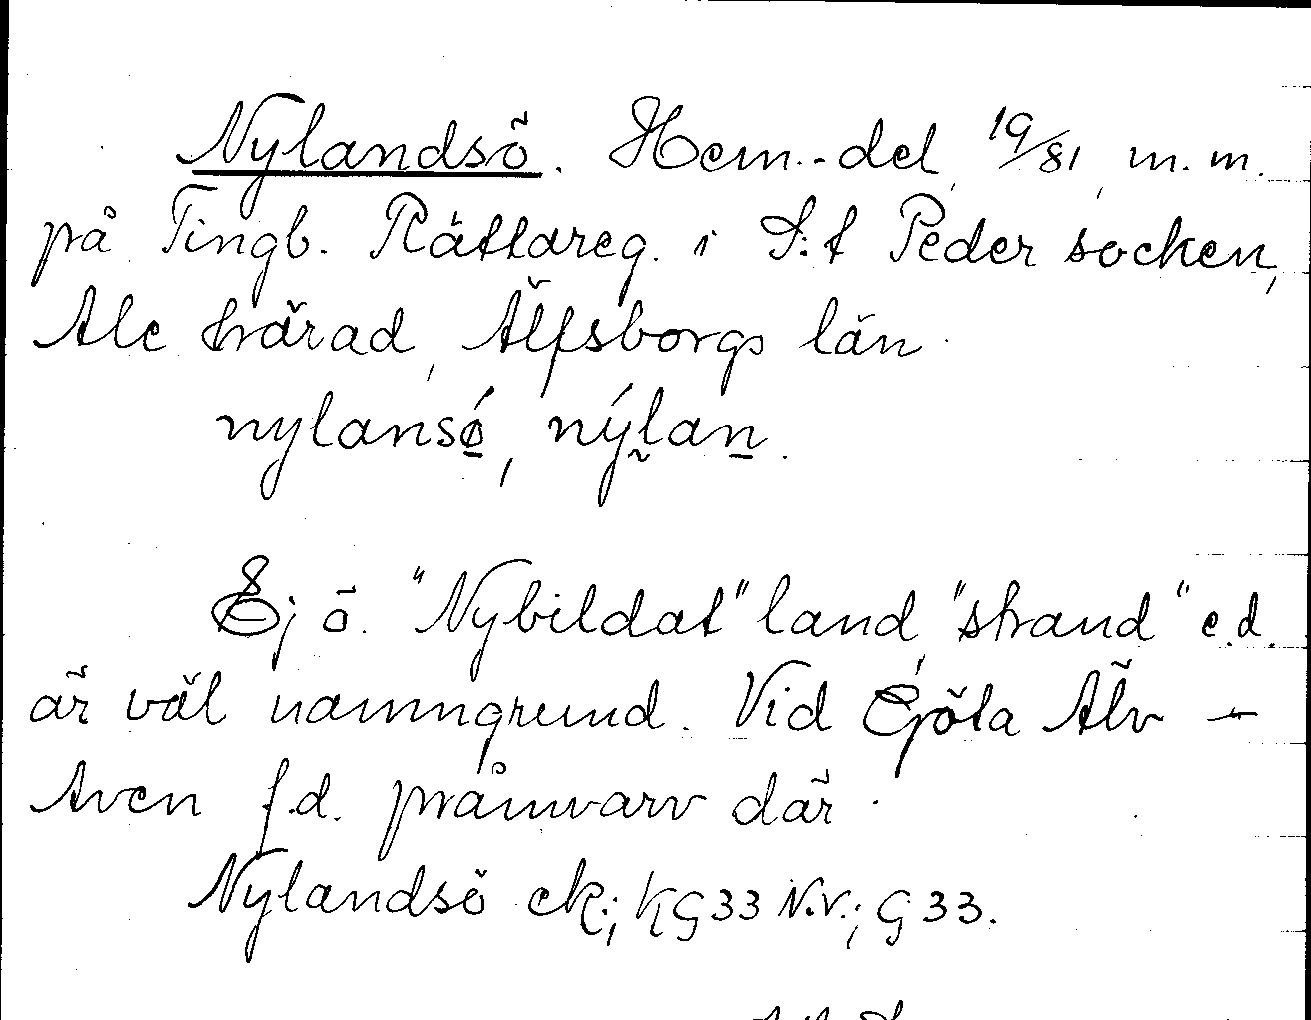 Nylandsö. Hem.-del 19/81, m.m.
på Tingb. Rättareg. i S:t Peder socken,
Ale härad, Älfsborgs län.
nylansǿ, nýlan.
Ej ö. "Nybildat" land, "strand" e.d.
är väl namngrund. Vid Göta Älv –
Även f.d. pråmvarv där.
Nylandsö ek; KG33 N.V.; G33.